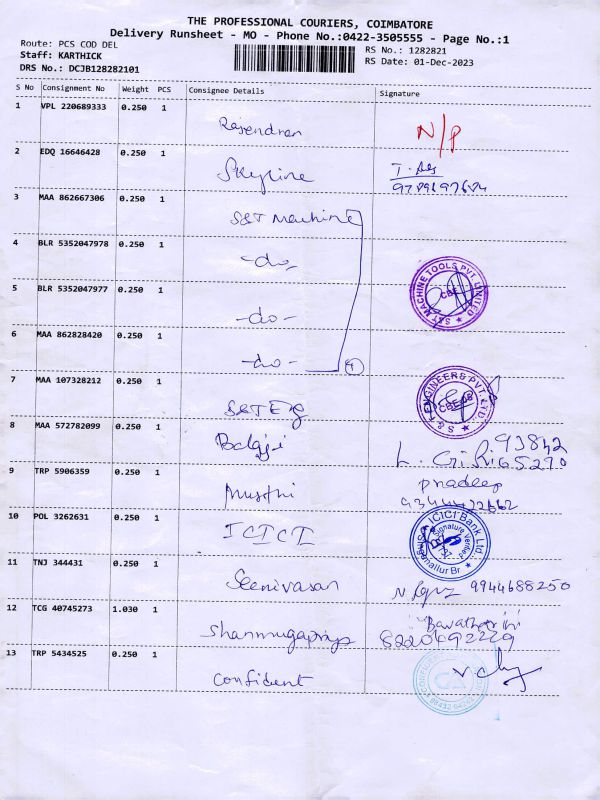 THE PROFESSIONAL COURIERS, COIMBATORE
Delivery Runsheet - MO - Phone No.:0422-3505555 - Page No.:1
Route: PCS COD DEL RS No.: 1282821
Staff: KARTHICK RS Date: 01-Dec-2023
DRS No.: DCJB128282101
S No Consignment No Weight PCS Consignee Details Signature
1 VPL 220689333 0.250 1 Rajendran N/P
2 EDQ 16646428 0.250 1 Skyline
3 MAA 862667306 0.250 1 S&T Machine
4 BLR 5352047978 0.250 1 -do-
S&T MACHINE TOOLS PVT. LIMITED CBE
5 BLR 5352047977 0.250 1 -do-
6 MAA 862828420 0.250 1 -do- 4
7 MAA 107328212 0.250 1 S&T Eg
S & T ENGINEERS PVT. LTD.
8 MAA 572782099 0.250 1 Balaji L. Giri 93842 65270
9 TRP 5906359 0.250 1 pradeep
10 POL 3262631 0.250 1 ICICI
ICICI Bank Ltd. Signature Verified
11 TNJ 344431 0.250 1 Seenivasan 9944688250
12 TCG 40745273 1.030 1 Shanmugapriya
8220492229
13 TRP 5434525 0.250 1 Confident